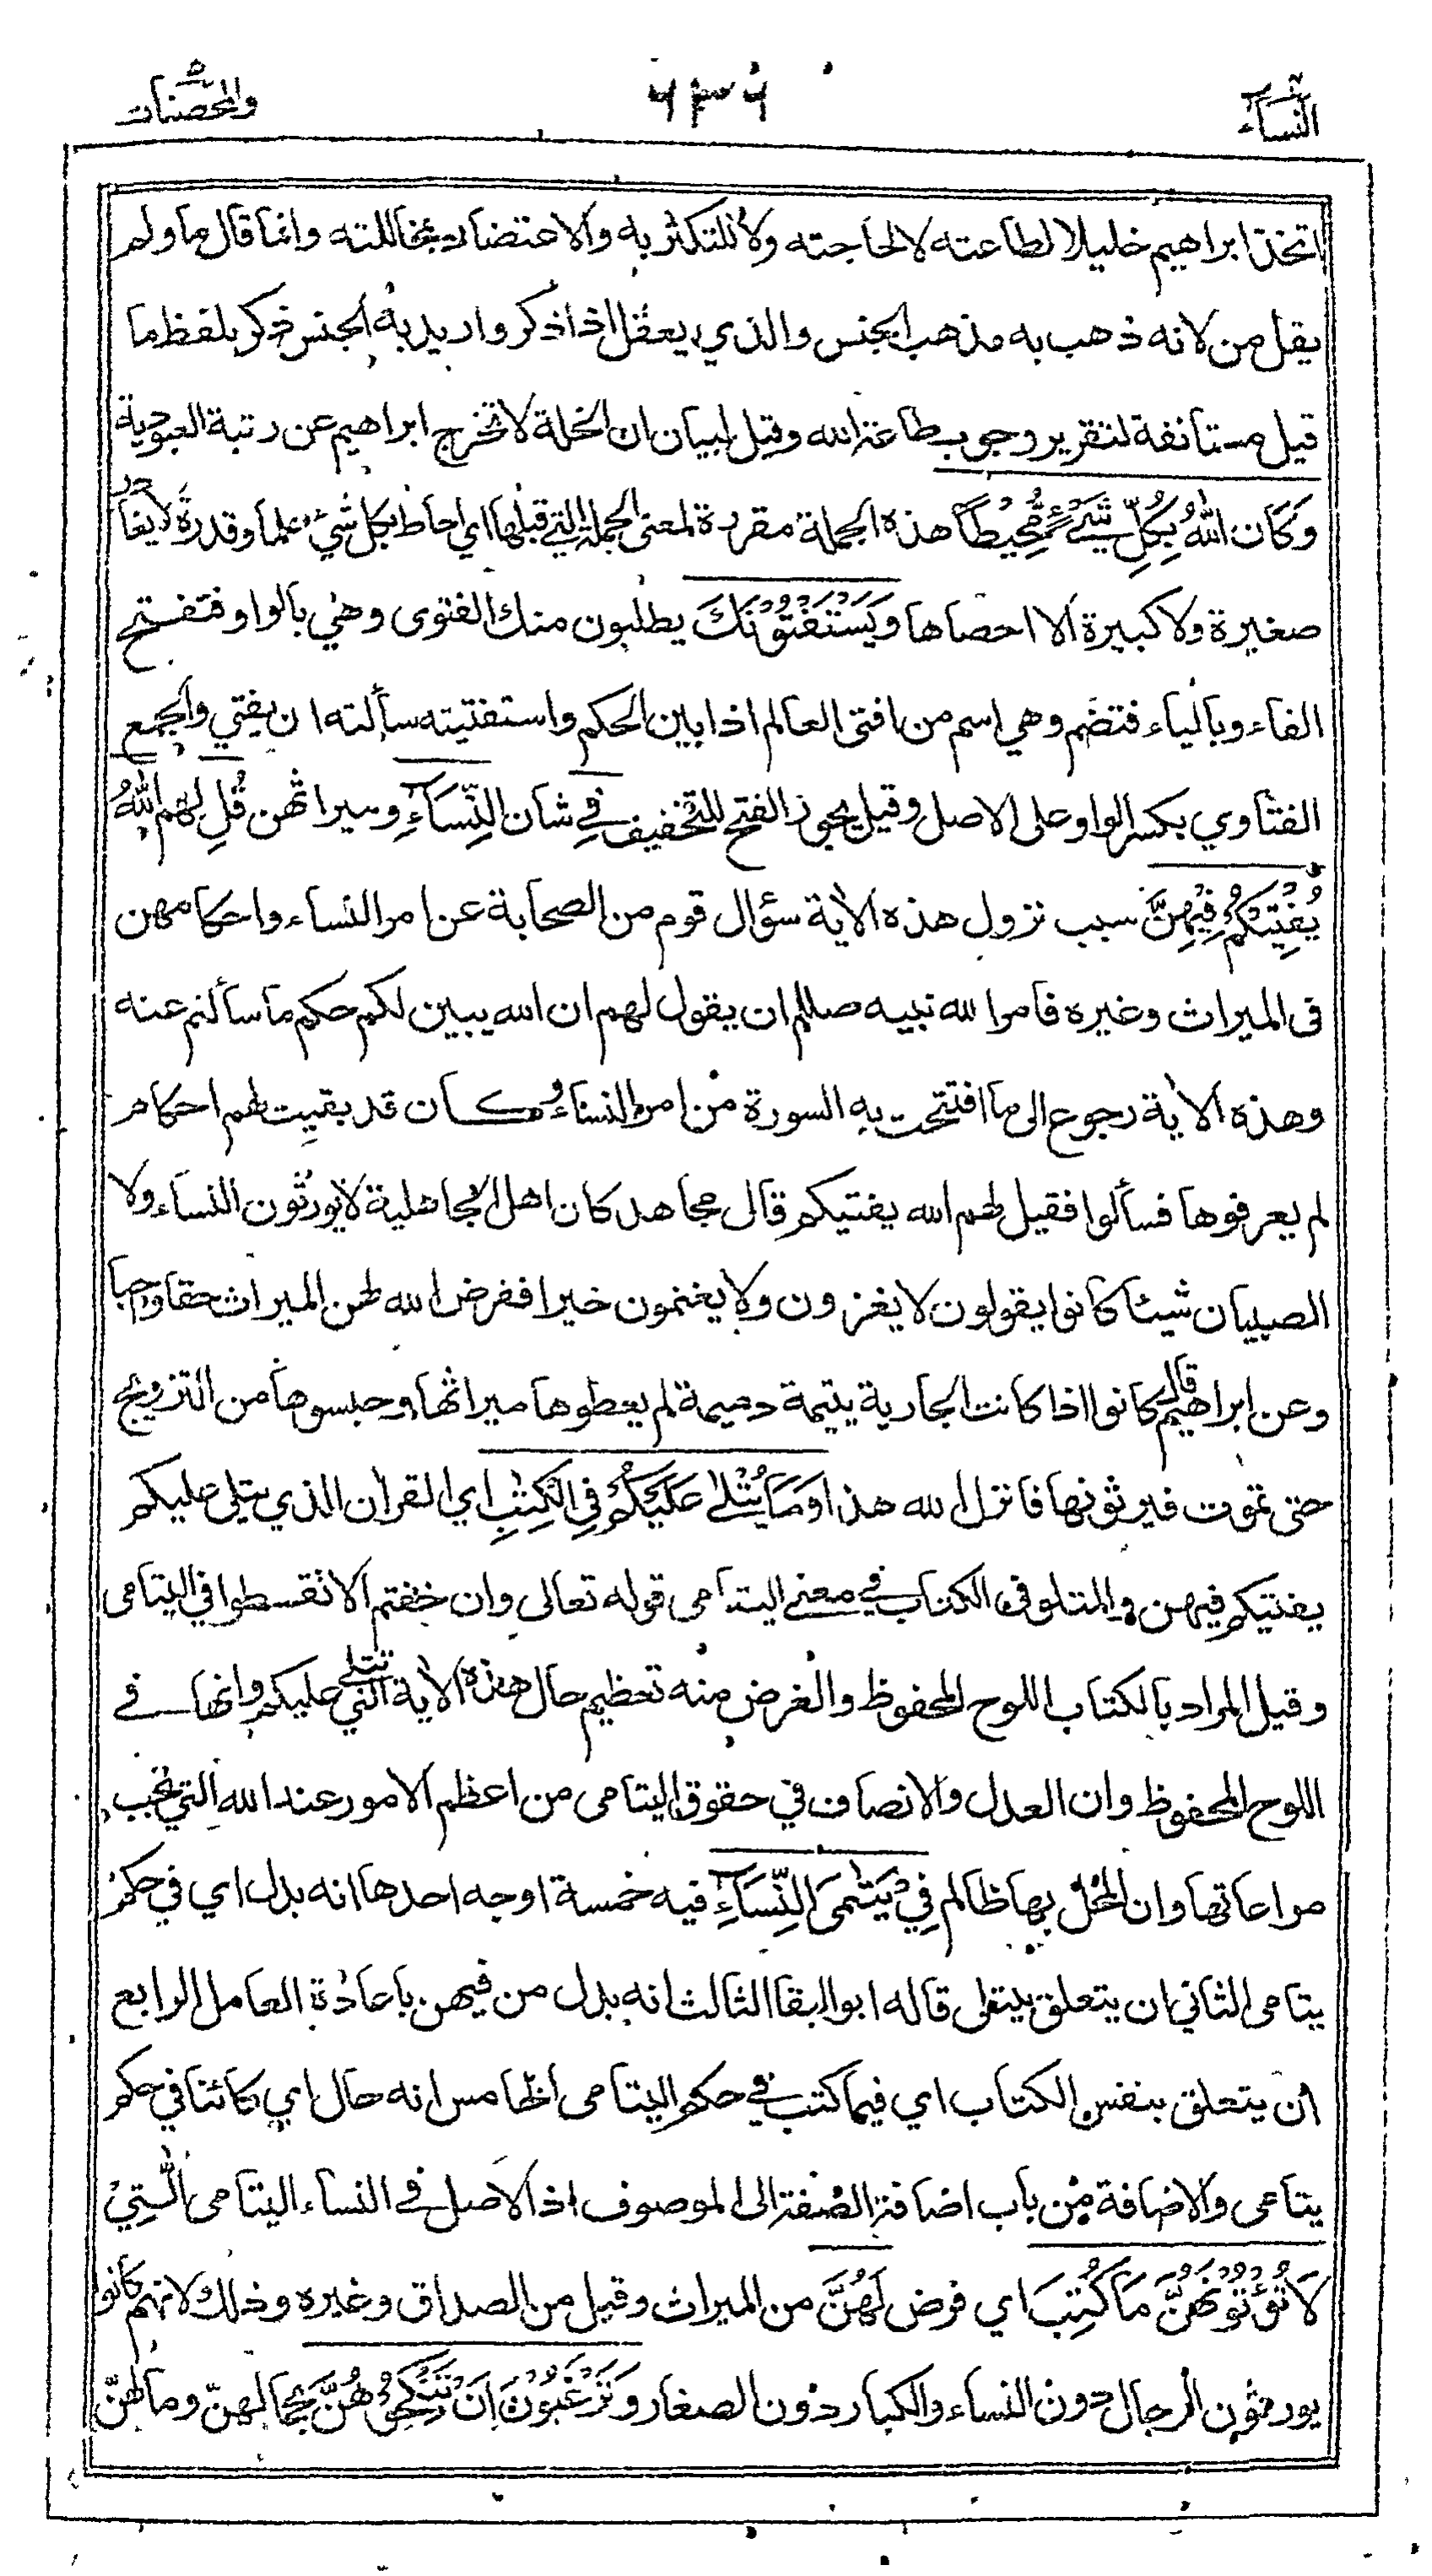 النساء ٦٣٦ والمحصنات
اتخذ ابراهيم خليلا لطاعته لا لحاجته ولا للتكثر به والاعتضاد بمخاللته وانما قال ما ولم
يقل من لانه ذهب به مذهب الجنس والذي يعقل اذا ذكر واريد به الجنس ذكر بلفظ ما
قيل مستأنفة لتقرير وجوب طاعة الله وقيل لبيان ان الخلة لا تخرج ابراهيم عن رتبة العبودية
وَكَانَ اللهُ بِكُلِّ شَيْءٍ مُّحِيْطًا هذه الجملة مقررة لمعنى الجملة التي قبلها اي احاط بكل شيء علما وقدرة لا يغادر
صغيرة ولا كبيرة الا احصاها وَيَسْتَفْتُوْنَكَ يطلبون منك الفتوى وهي بالواو فتفتح
الفاء وبالياء فتضم وهي اسم من افتى العالم اذا بين الحكم واستفتيته سألته ان يفتي والجمع
الفتاوي بكسر الواو على الاصل وقيل يجوز الفتح للتخفيف فِي شان النِّسَآءِ وميراثهن قُلِ لهم اللهُ
يُفْتِيْكُمْ فِيْهِنَّ سبب نزول هذه الاية سؤال قوم من الصحابة عن امر النساء واحكامهن
في الميراث وغيره فامر الله نبيه صللم ان يقول لهم ان الله يبين لكم حكم ما سألتم عنه
وهذه الاية رجوع الى ما افتتحت به السورة من امر النساء وكان قد بقيت لهم احكام
لم يعرفوها فسألوا فقيل لهم الله يفتيكم قال مجاهد كان اهل الجاهلية لا يورثون النساء ولا
الصبيان شيئا كانوا يقولون لا يغزون ولا يغنمون خيرا ففرض الله لهن الميراث حقا واجبا
وعن ابراهيم قال كانوا اذا كانت الجارية يتيمة دميمة لم يعطوها ميراثها وحبسوها من التزويج
حتى تموت فيرثونها فانزل الله هذا وَمَا يُتْلٰى عَلَيْكُمْ فِي الْكِتٰبِ اي القرآن الذي يتلى عليكم
يفتيكم فيهن والمتلو في الكتاب في معنى اليتامى قوله تعالى وان خفتم الا تقسطوا في اليتامى
وقيل المراد بالكتاب اللوح المحفوظ والغرض منه تعظيم حال هذه الاية التي تتلى عليكم وانها في
اللوح المحفوظ وان العدل والانصاف في حقوق اليتامى من اعظم الامور عند الله التي تجب
مراعاتها وان المخل بها ظالم فِيْ يَتٰمَى النِّسَآءِ فيه خمسة اوجه احدها انه بدل اي في حكم
يتامى الثاني ان يتعلق بيتلى قاله ابو البقا الثالث انه بدل من فيهن باعادة العامل الرابع
ان يتعلق بنفس الكتاب اي فيما كتب في حكم اليتامى الخامس انه حال اي كائنا في حكم
يتامى والاضافة من باب اضافة الصفة الى الموصوف اذ الاصل في النساء اليتامى الّٰتِيْ
لَا تُؤْتُوْنَهُنَّ مَا كُتِبَ اي فرض لَهُنَّ من الميراث وقيل من الصداق وغيره وذلك لانهم كانوا
يورثون الرجال دون النساء والكبار دون الصغار وَتَرْغَبُوْنَ اَنْ تَنْكِحُوْهُنَّ بجمالهن ومالهن